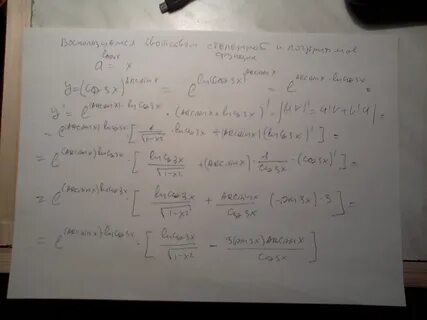 Воспользуемся свойством степенной и логарифмов
функции
a^{log_a x} = x
y = (cos 3x)^{arcsin x} = e^{ln(cos 3x)^{arcsin x}} = e^{arcsin x · ln cos 3x} =
y' = e^{(arcsin x) · ln cos 3x} · (arcsin x · ln cos 3x)' = |(uv)' = u'v + v'u| =
= e^{(arcsin x) ln cos 3x} · [1/√(1-x²) · ln cos 3x + (arcsin x)(ln cos 3x)'] =
= e^{(arcsin x) ln cos 3x} · [ln cos 3x/√(1-x²) + (arcsin x) · 1/cos 3x · (cos 3x)'] =
= e^{(arcsin x) ln cos 3x} · [ln cos 3x/√(1-x²) + arcsin x/cos 3x · (-sin 3x) · 3] =
= e^{(arcsin x) · ln cos 3x} · [ln cos 3x/√(1-x²) - 3(sin 3x) arcsin x/cos 3x]